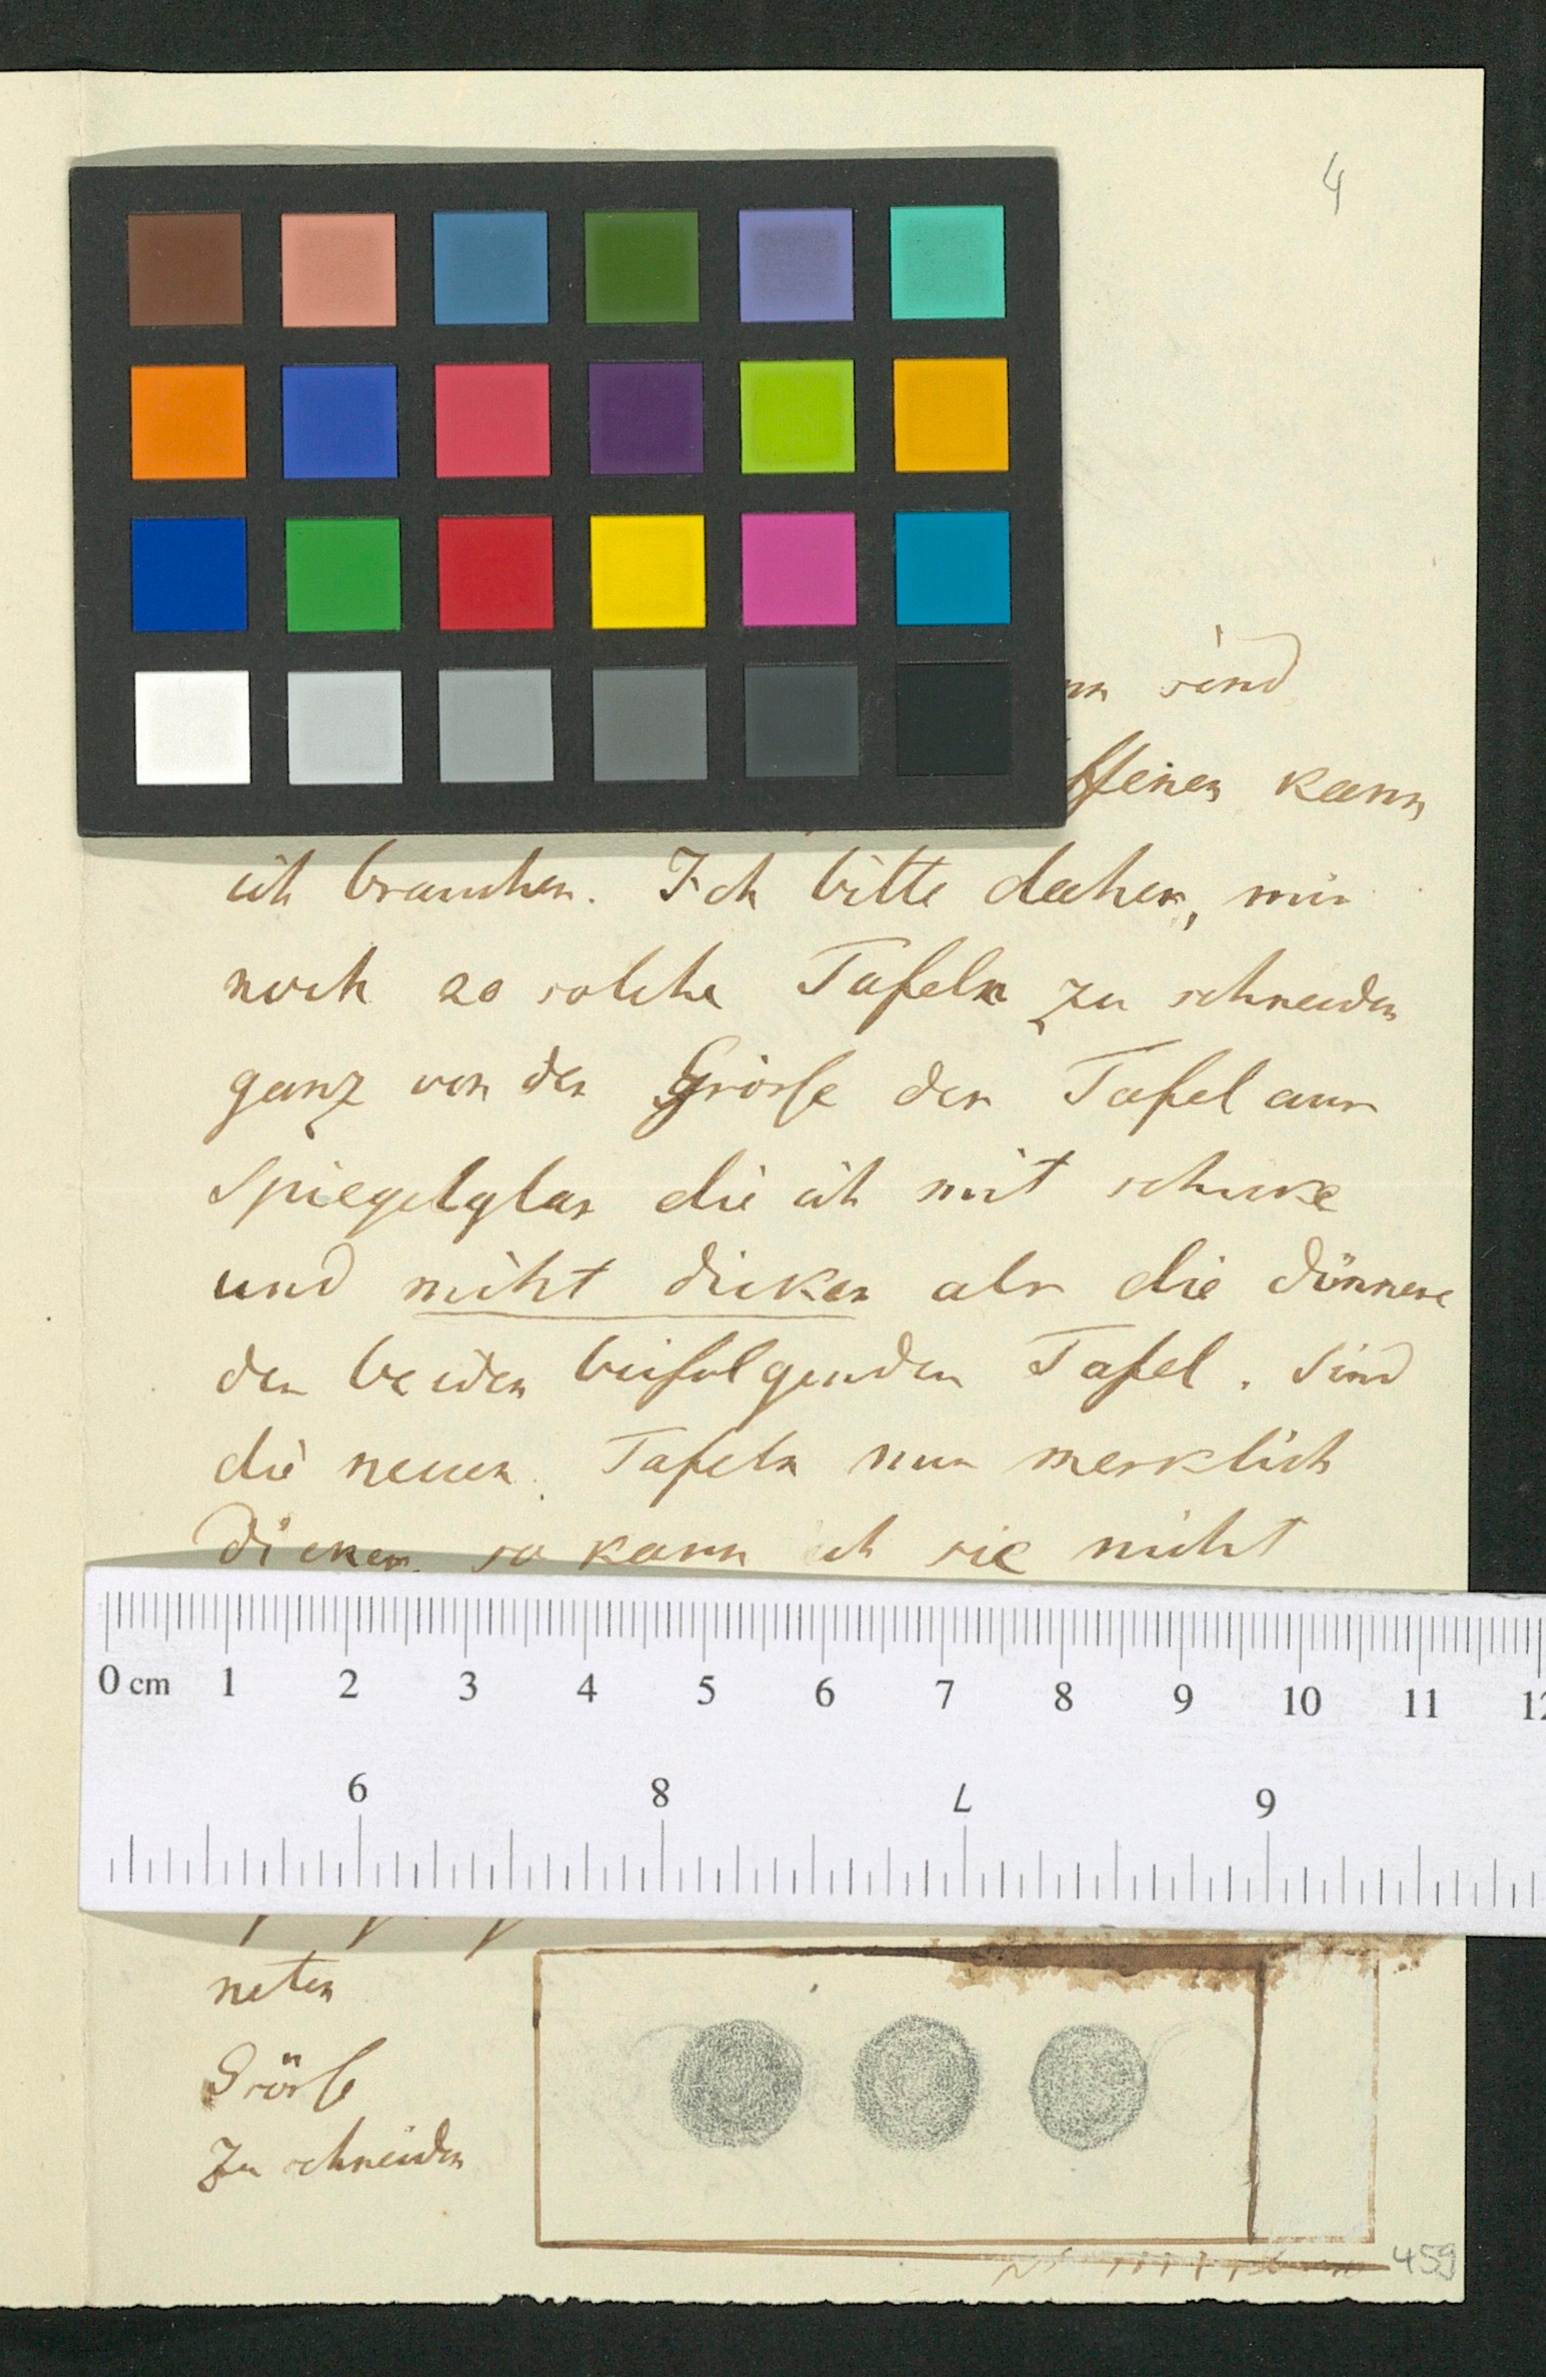 4
sind
kann
ich brauchen. Ich bitte daher, mir
noch 20 solche Tafeln zu schneiden
ganz von der Grösse der Tafel aus
Spiegelglas die ich mit schicke
und nicht dicker als die dünnere
der beiden beifolgenden Tafel. Sind
die neuen Tafeln nur merklich
dicker so kann ich sie nicht
0 cm 1 2 3 4 5 6 7 8 9 10 11 12
9 8 7 6
neten
Grösse
zu schneiden
459